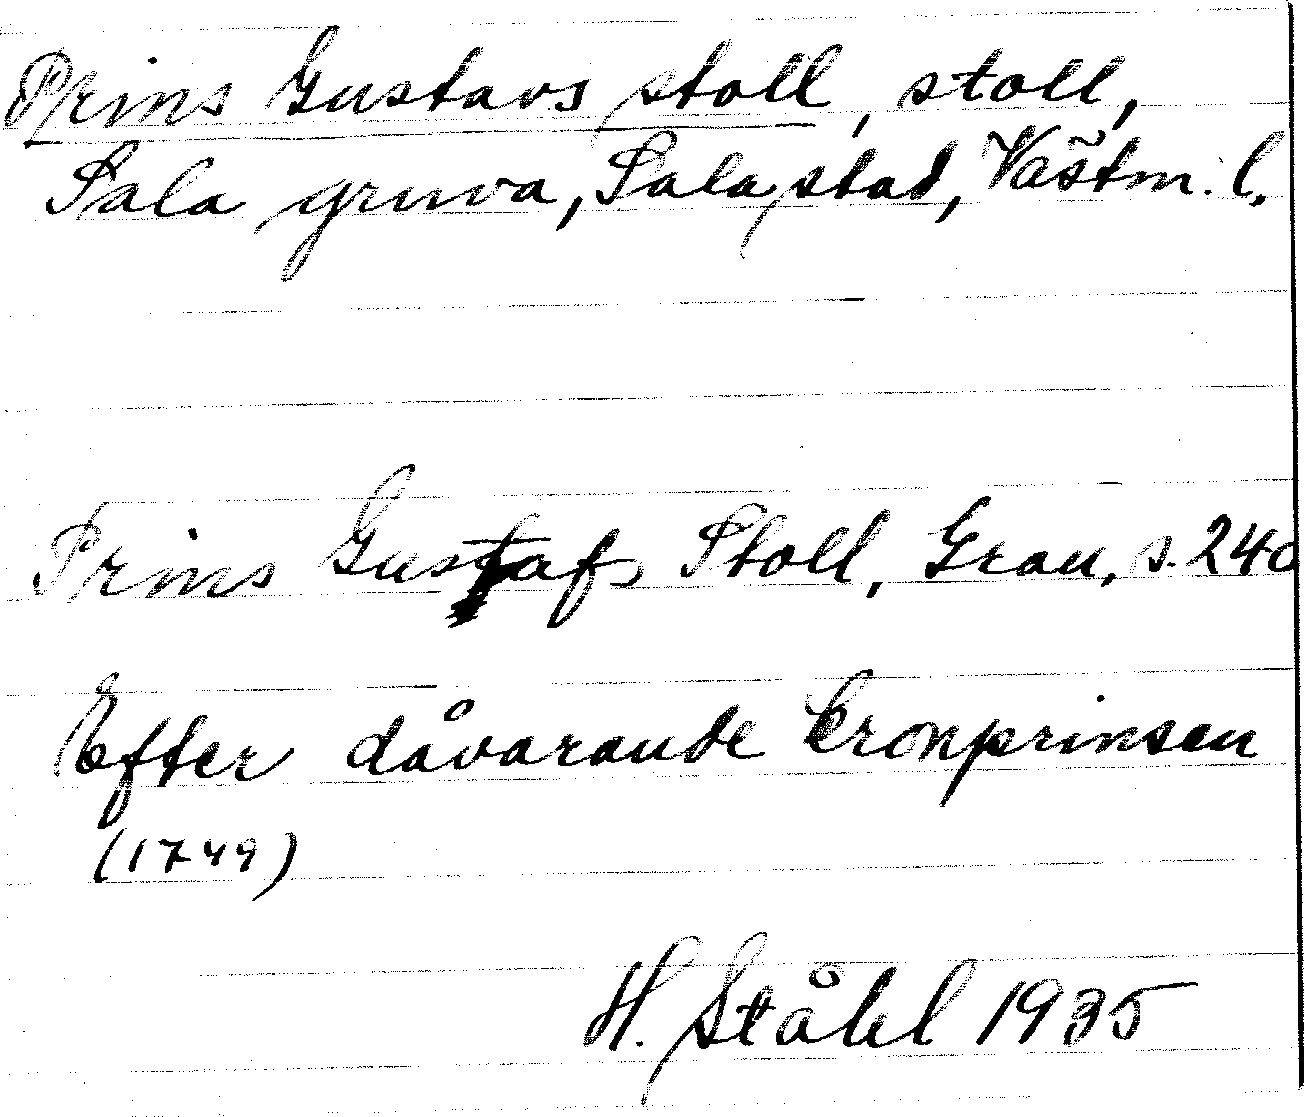 Prins Gustavs stoll, stoll,
Sala gruva, Sala stad, Västm. l.
Prins Gustafs Stoll, Grau, s. 240
Efter dåvarande kronprinsen
(1749)
H. Ståhl 1935